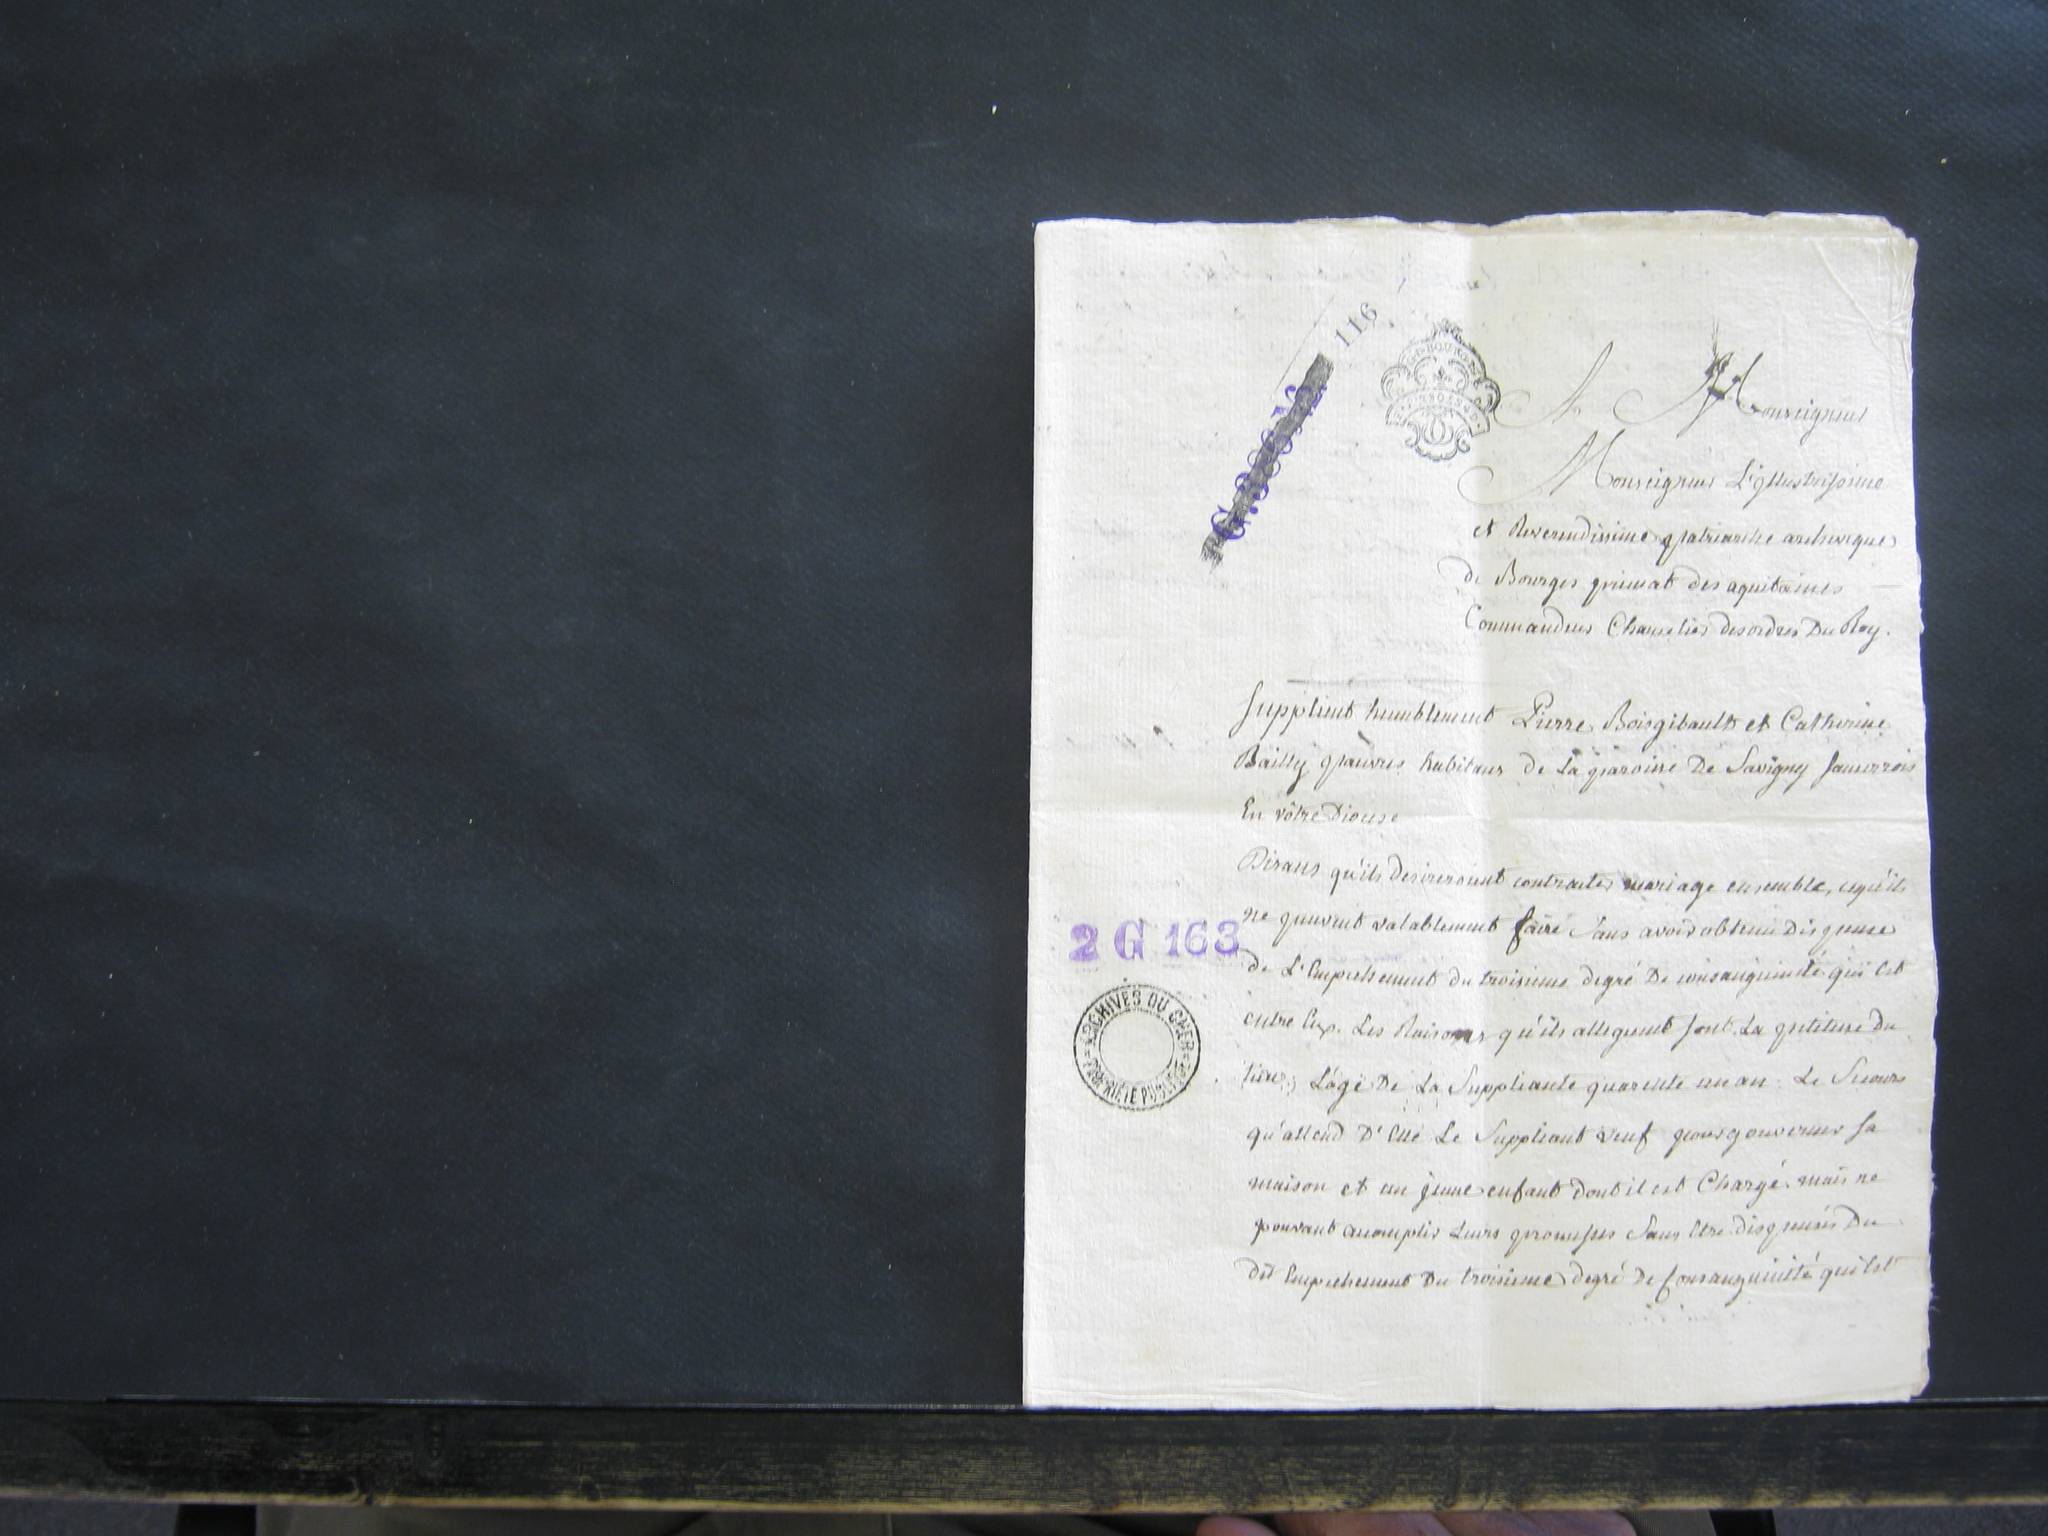 116
G. 386/12.
A Monseigneur
Monseigneur L'Illustrissime
et Reverendissime patriarche archeveque
de Bourges primat des aquitaines
Commandeur Chancelier des ordres Du Roy.
Supplient humblement Pierre Boisgibault et Catherine
Bailly pauvres habitans de La paroisse De Savigny Sancerrois
En vôtre Diocese
Disans qu'ils desireroient contracter mariage ensemble, ce qu'ils
ne peuvent valablement faire Sans avoir obtenu Dispense
de L'Empechement du troisieme degré De consanguinité qui Est
entre Eux. Les Raisons qu'ils alleguent sont La petitesse Du
lieu; L'âge De La Suppliante quarente un an. Le Secours
qu'attend D'Elle Le Suppliant veuf pour gouverner sa
maison et un jeune enfant dont il est Chargé. mais ne
pouvant accomplir Leurs promesses Sans Etre dispensés Du
dit Empechement Du troisieme degré De Consanguinité qui Est
2 G 163
ARCHIVES DU CHER
PROPRIÉTÉ PUBLIQUE